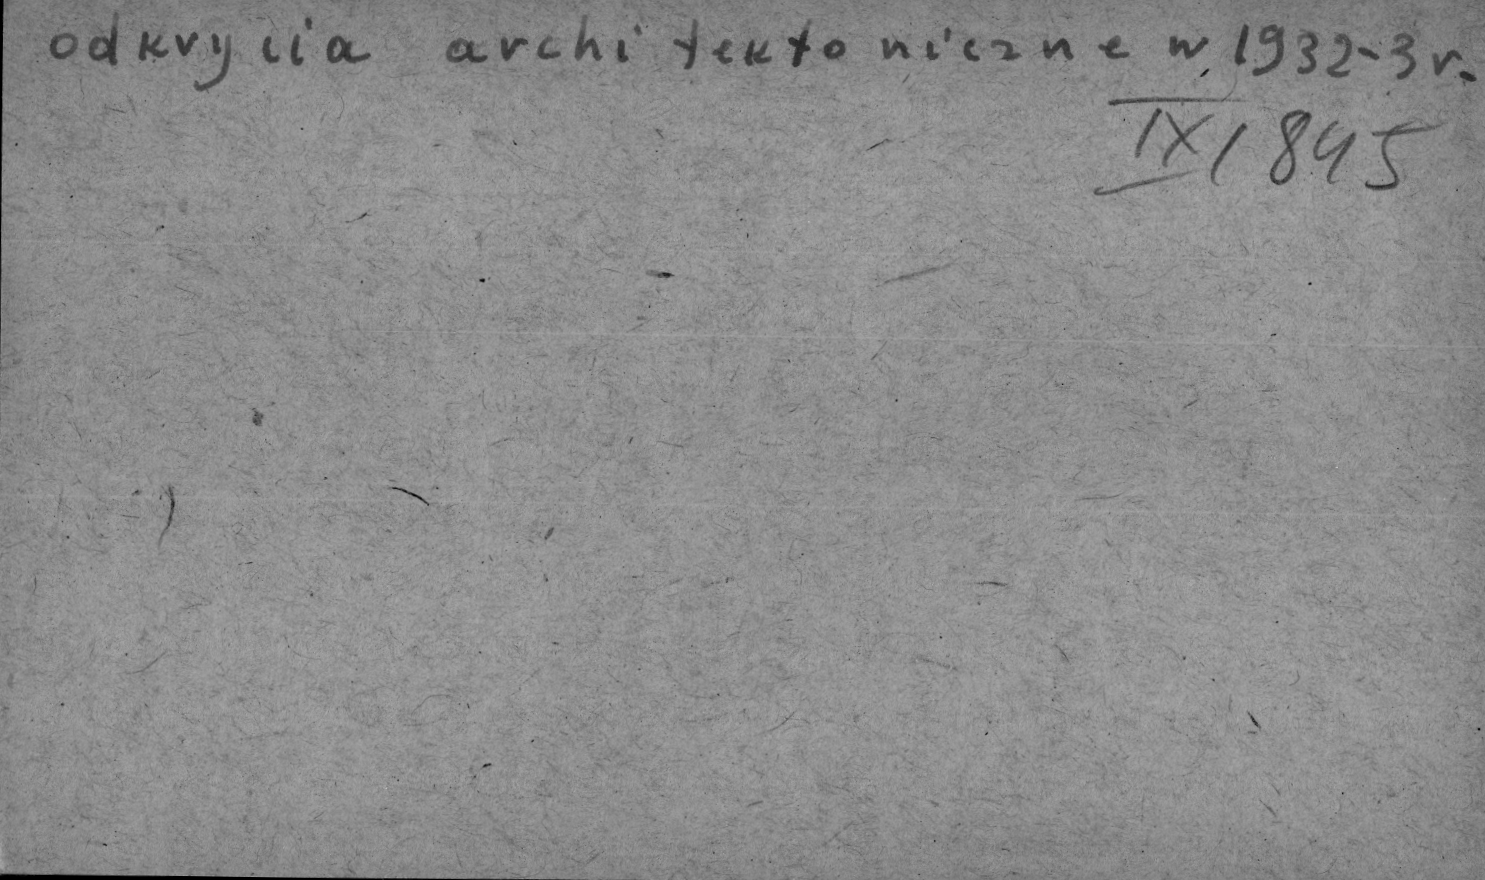 odkrycia architektoniczne w 1932-3 r.
IX/845